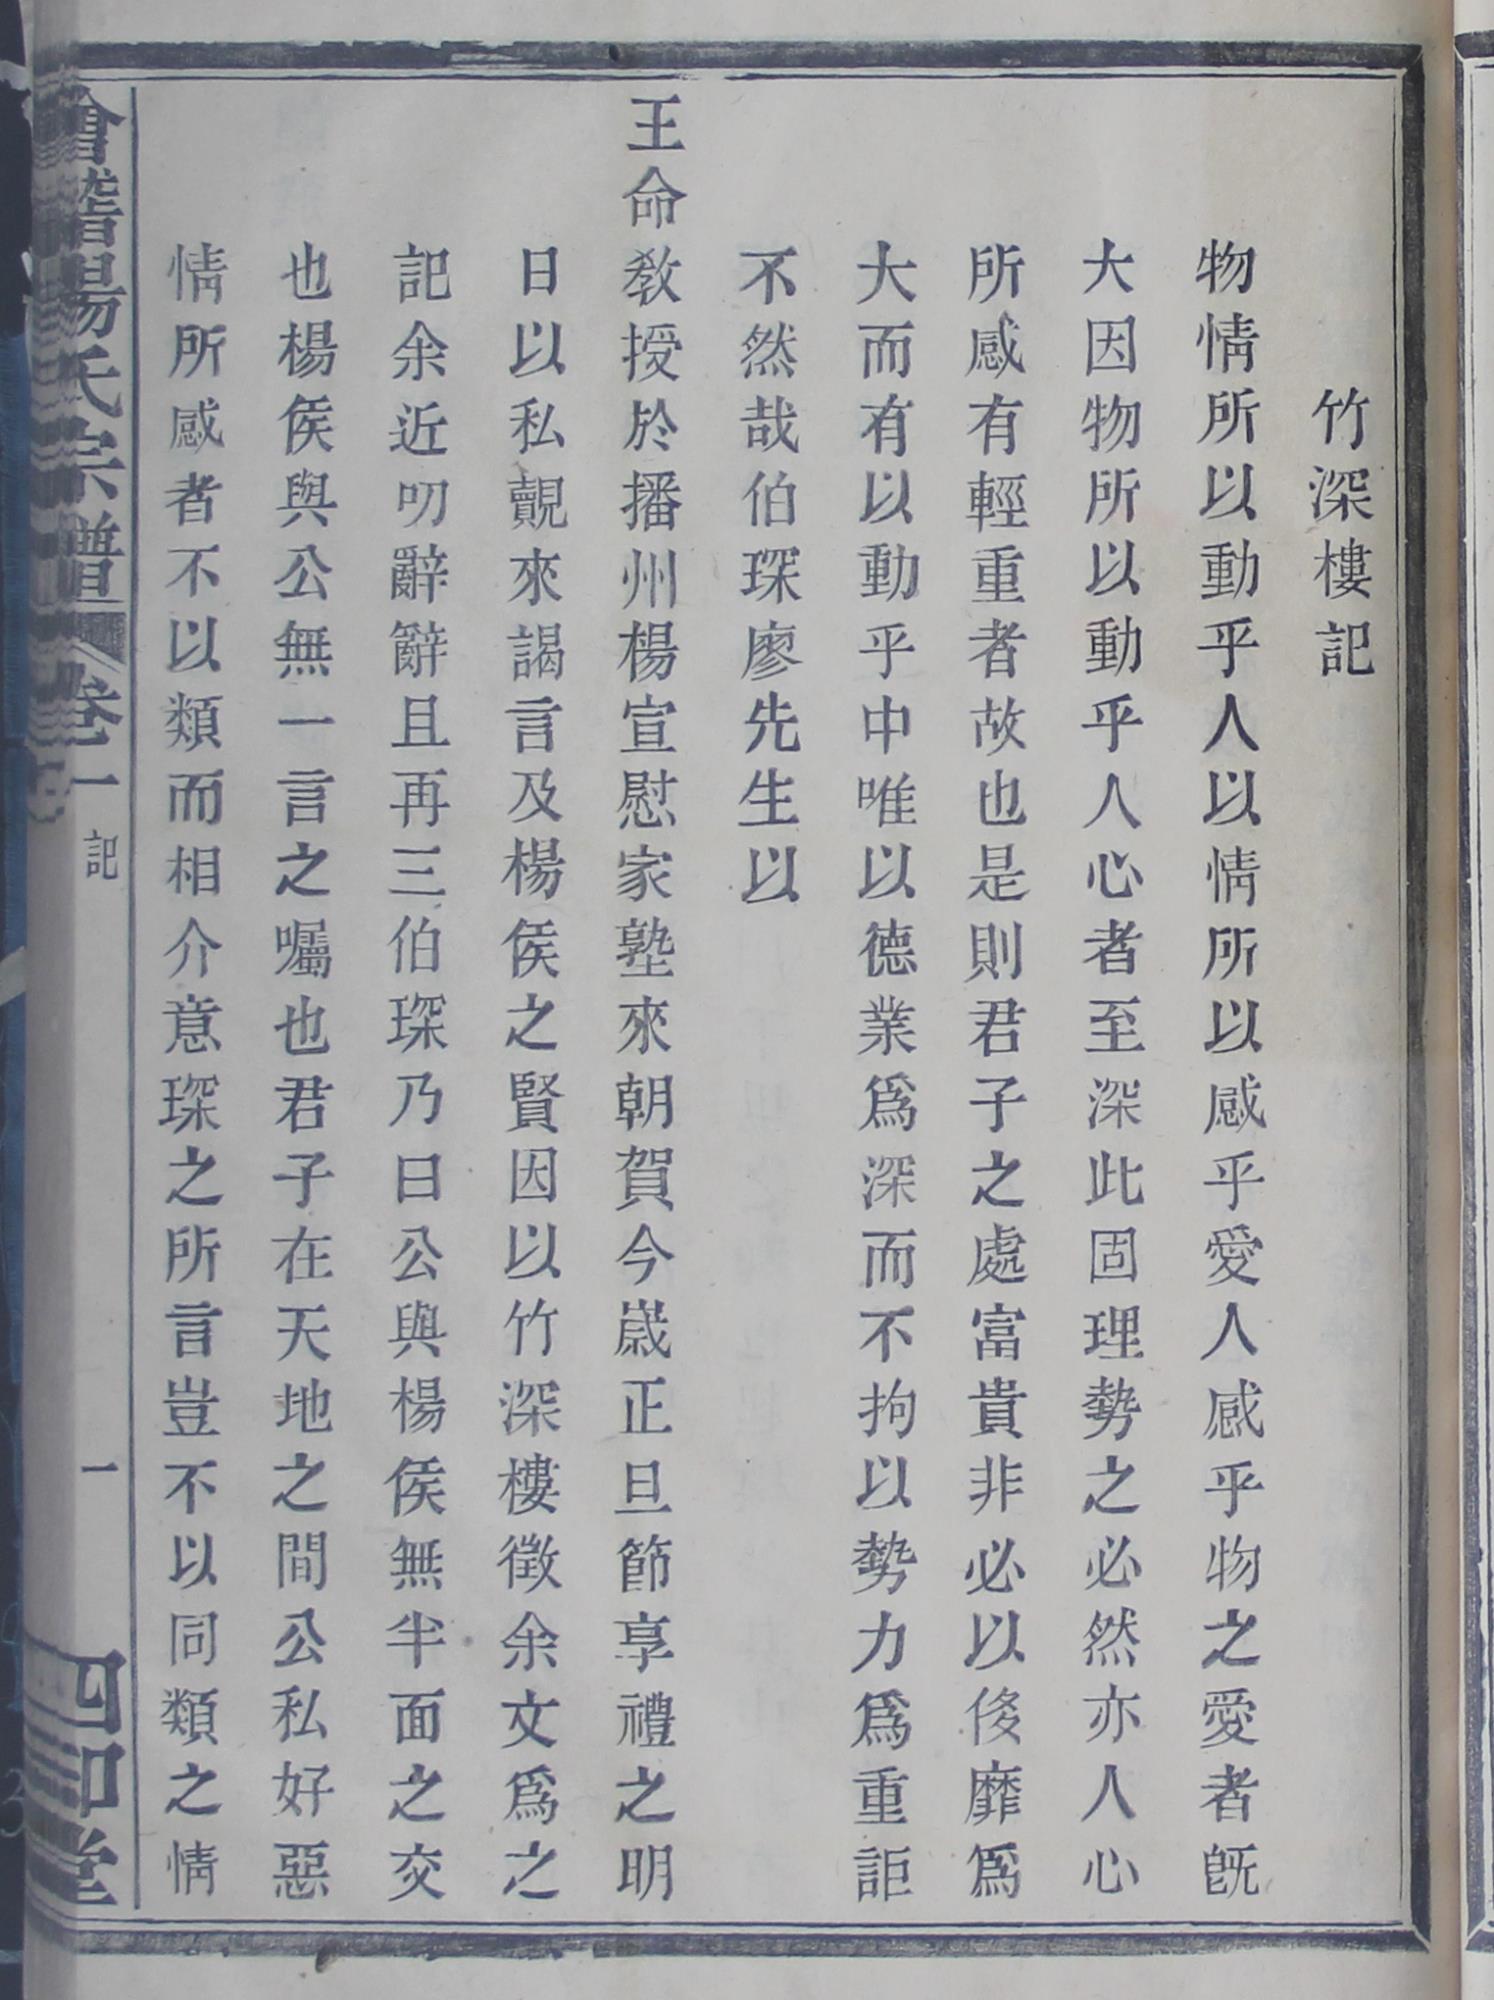 竹深樓記
物情所以動乎人以情所以感乎愛人感乎物之愛者既
大因物所以動乎人心者至深此固理勢之必然亦人心
所感有輕重者故也是則君子之處富貴非必以侈靡爲
大而有以動乎中唯以德業爲深而不拘以勢力爲重詎
不然哉伯琛廖先生以
王命教授於播州楊宣慰家塾來朝賀今嵗正旦節享禮之明
日以私覿來謁言及楊侯之賢因以竹深樓徵余文爲之
記余近叨辭辭且再三伯琛乃曰公與楊侯無半面之交
也楊侯與公無一言之囑也君子在天地之間公私好惡
情所感者不以類而相介意琛之所言豈不以同類之情
會稽楊氏宗譜 卷一 記 一 四知堂